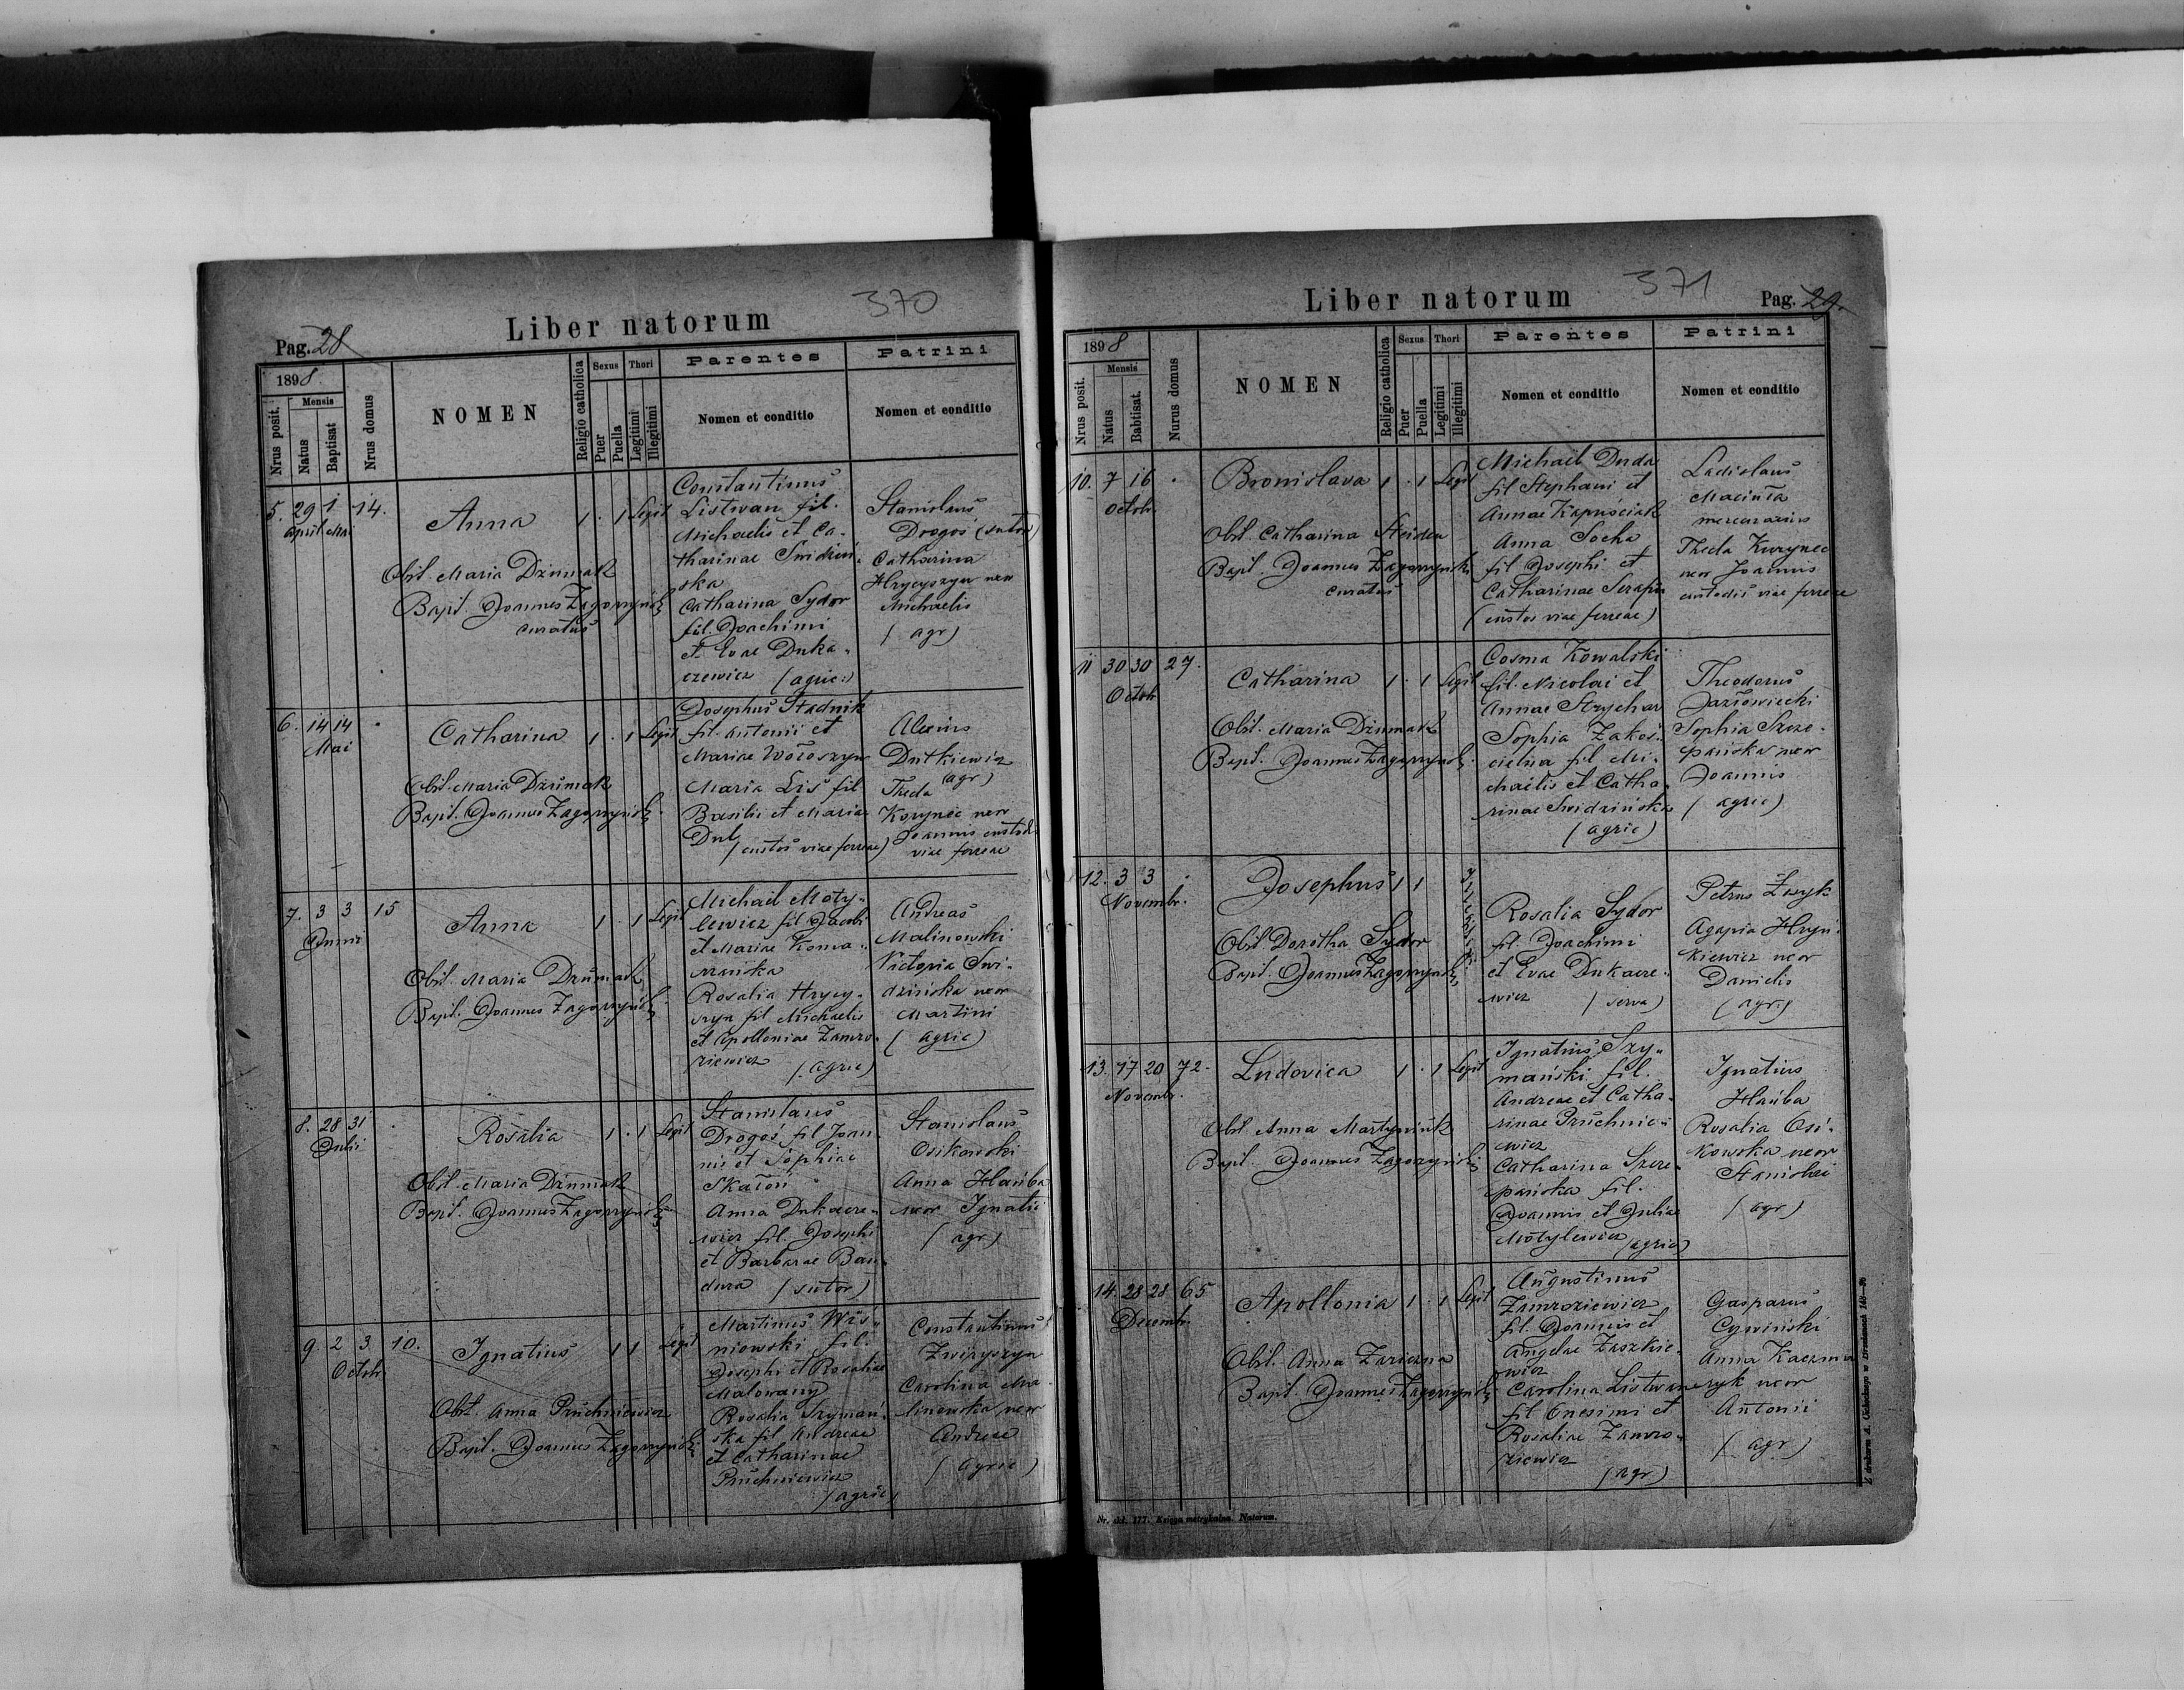 370
Liber natorum
Pag. 28
1898
Nrus posit.
Mensis
Natus
Baptisat
Nrus domus
NOMEN
Religio catholica
Sexus
Puer
Puella
Thori
Legitimi
Illegitimi
Parentes
Nomen et conditio
Patrini
Nomen et conditio
5. 29 1 14.
April Mai
Anna 1 . 1 Legit
Obst. Maria Dziumak
Bapt. Joannes Zagorzyński
curatus
Constantinus
Listwan fil.
Michaelis et Ca-
tharinae Swidziń-
ska
Catharina Sydor
fil. Joachimi
et Evae Duka-
czewicz (agric:)
Stanislaus
Drogoś (sutor)
Catharina
Hrycyszyn uxor
Michaelis
(agr)
6. 14 14 .
Mai
Catharina 1 . 1 Legit
Obst. Maria Dziumak
Bapt. Joannes Zagorzyński
Josephus Stadnik
fil. Antonii et
Mariae Wołoszyn
Maria Lis fil
Basilii et Mariae
Dul (custos viae ferreae)
Alexius
Dutkiewicz
(agr)
Theda
Korynec uxor
Joannis custodis
viae ferreae
7. 3 3 15
Junii
Anna 1 . 1 Legit
Obst. Maria Dziumak
Bapt. Joannes Zagorzyński
Michael Moty-
lewicz fil Jacobi
et Mariae
Rosalia Hrycy-
szyn fil Michaelis
et Apolloniae Zamro-
ziewicz (agric)
Andreas
Malinowski
Victoria Swi-
dzińska uxor
Martini
(agric)
8. 28 31 .
Julii
Rosalia 1 . 1 Legit
Obst. Maria Dziumak
Bapt. Joannes Zagorzyński
Stanislaus
Drogoś fil Joan-
nis et Sophiae
Skałoń
Anna Dukacze-
wicz fil. Josephi
et Barbarae Ban-
dura (sutor)
Stanislaus
Osikowski
Anna Hańba
uxor Ignatii
(agr)
9. 2 3 10.
Octobr
Ignatius 1 1 Legit
Obst. Anna Pruchniewicz
Bapt. Joannes Zagorzyński
Martinus Wiś-
niowski fil.
Josephi et Rosaliae
Malowany
Rosalia Szymań-
ska fil Andreae
et Catharinae
Pruchniewicz
(agric)
Constantinus
Carolina Ma-
linowska uxor
Andreae
(agric)
371
Liber natorum
Pag. 29.
1898
Nrus posit.
Mensis
Natus
Babtisat.
Nurus domus
NOMEN
Religio catholica
Sexus
Puer
Puella
Thori
Legitimi
Illegitimi
Parentes
Nomen et conditio
Patrini
Nomen et conditio
10. 7 16 .
Octobr.
Bronislava 1 . 1 Legit
Obst. Catharina
Bapt. Joannes Zagorzyński
curatus
Michael Duda
fil Stephani et
Annae Kapuściak
Anna Socha
fil Josephi et
Catharinae Serafin
(custos viae ferreae)
Ladislaus
mercenarius
Theda Korynec
uxor Joannis
custodis viae ferreae
11 30 30 27.
Octobr
Catharina 1 . 1 Legit
Obst. Maria Dziumak
Bapt. Joannes Zagorzyński
Cosma Kowalski
fil. Nicolai et
Annae Strychar
Sophia Zakoś-
cielna fil Mi-
chaelis et Catha-
rinae Swidzińska
(agric)
Theodorus
Jarłowiecki
Sophia Szcze-
pańska uxor
Joannis
(agric)
12. 3 3 .
Novembr.
Josephus 1 1
Obst. Dorotha Sydor
Bapt. Joannes Zagorzyński
Rosalia Sydor
fil. Joachimi
et Evae Dukacze-
wicz (serva)
Petrus Zwyk
Agapia Hryń-
kiewicz uxor
Danielis
(agr.)
13. 17 20 72.
Novembr.
Ludovica 1 . 1 Legit
Obst. Anna Martyniuk
Bapt. Joannes Zagorzyński
Ignatius Szy-
mański fil.
Andreae et Catha-
rinae Pruchnie-
wicz
Catharina Szcze-
pańska fil.
Joannis et Juliae
Motylewicz (agric)
Ignatius
Hańba
Rosalia Osi-
kowska uxor
Stanislai
(agr)
14. 28 28 65
Decembr.
Apollonia 1 . 1 Legit
Obst. Anna
Bapt. Joannes Zagorzyński
Augustinus
Zamroziewicz
fil. Joannis et
Angelae Zaszkie-
wicz
Carolina Listwan
fil Onesimi et
Rosaliae Zamro-
ziewicz
(agr)
Gasparus
Cywiński
Anna Kaczma-
ryk uxor
Antonii
(agr)
Nr. skł. 177. Księga metrykalna. Natorum.